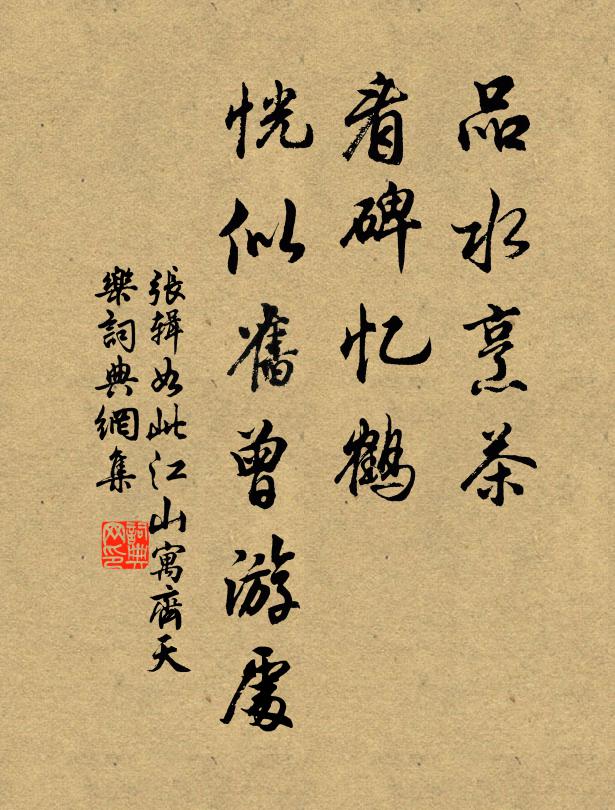 品水烹茶
看碑忆鹤
恍似舊曾游處
張辑如此江山寓齊天
樂詞典網集
詞典
网印